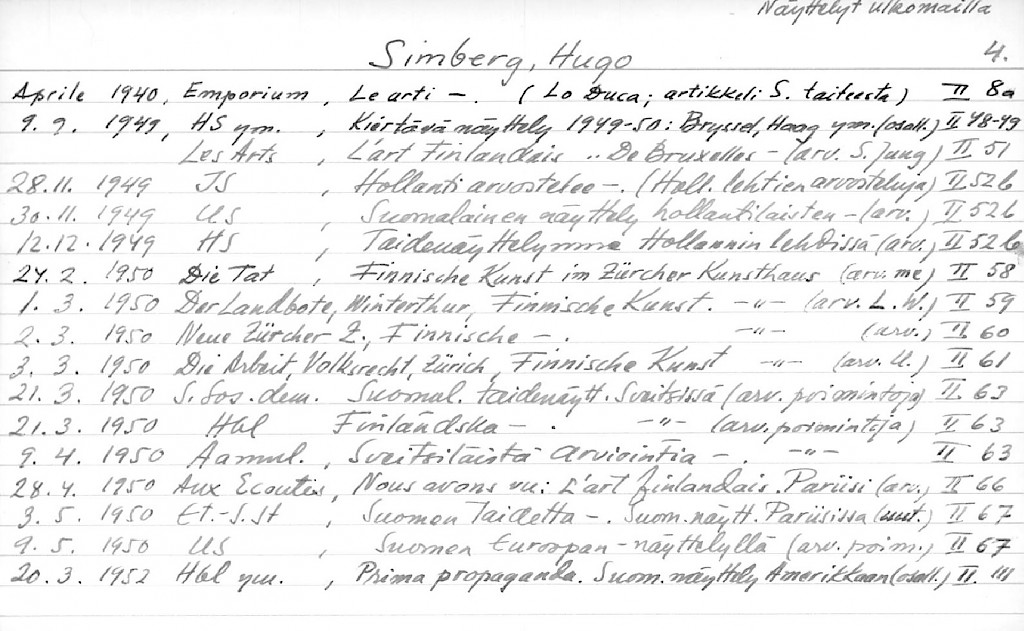 Näyttelyt ulkomailla
Simberg, Hugo 4.
Aprile 1940, Emporium, Le arti -. (Lo Duca; artikkeli S. taiteesta) II 8a
9.9. 1949, HS ym., Kiertävä näyttely 1949-50: Bryssel, Haag ym. (osall.) II 48-49
Les Arts, L'art Finlandais .. De Bruxelles - (arv. S. Jung) II 51
28.11. 1949 IS, Hollanti arvostelee -. (Holl. lehtien arvosteluja) II 52b
30.11. 1949 US, Suomalainen näyttely hollantilaisten - (arv.) II 52b
12.12. 1949 HS, Taidenäyttelymme Hollannin lehdissä (arv.) II 52b
24.2. 1950 Die Tat, Finnische Kunst im Zürcher Kunsthaus (arv. me) II 58
1.3. 1950 Der Landbote, Winterthur, Finnische Kunst. -"- (arv. L.W.) II 59
2.3. 1950 Neue Zürcher Z., Finnische -. -"- (arv.) II 60
3.3. 1950 Die Arbeit, Volksrecht, Zürich, Finnische Kunst -"- (arv. U.) II 61
21.3. 1950 S. Sos.dem. Suomal. taidenäytt. Sveitsissä (arv. poimintoja) II 63
21.3. 1950 Hbl Finländska -. -"- (arv. poimintoja) II 63
9.4. 1950 Aamul., Sveitsiläistä arviointia -. -"- II 63
28.4. 1950 Aux Ecoutes, Nous avons vu: L'art finlandais. Pariisi (arv.) II 66
3.5. 1950 Et.-S.St, Suomen Taidetta -. Suom. näytt. Pariisissa II 67
9.5. 1950 US, Suomen Euroopan-näyttelyllä (arv. poim.) II 67
20.3. 1952 Hbl ym., Prima propaganda. Suom. näyttely Amerikkaan (osall.) II. 111